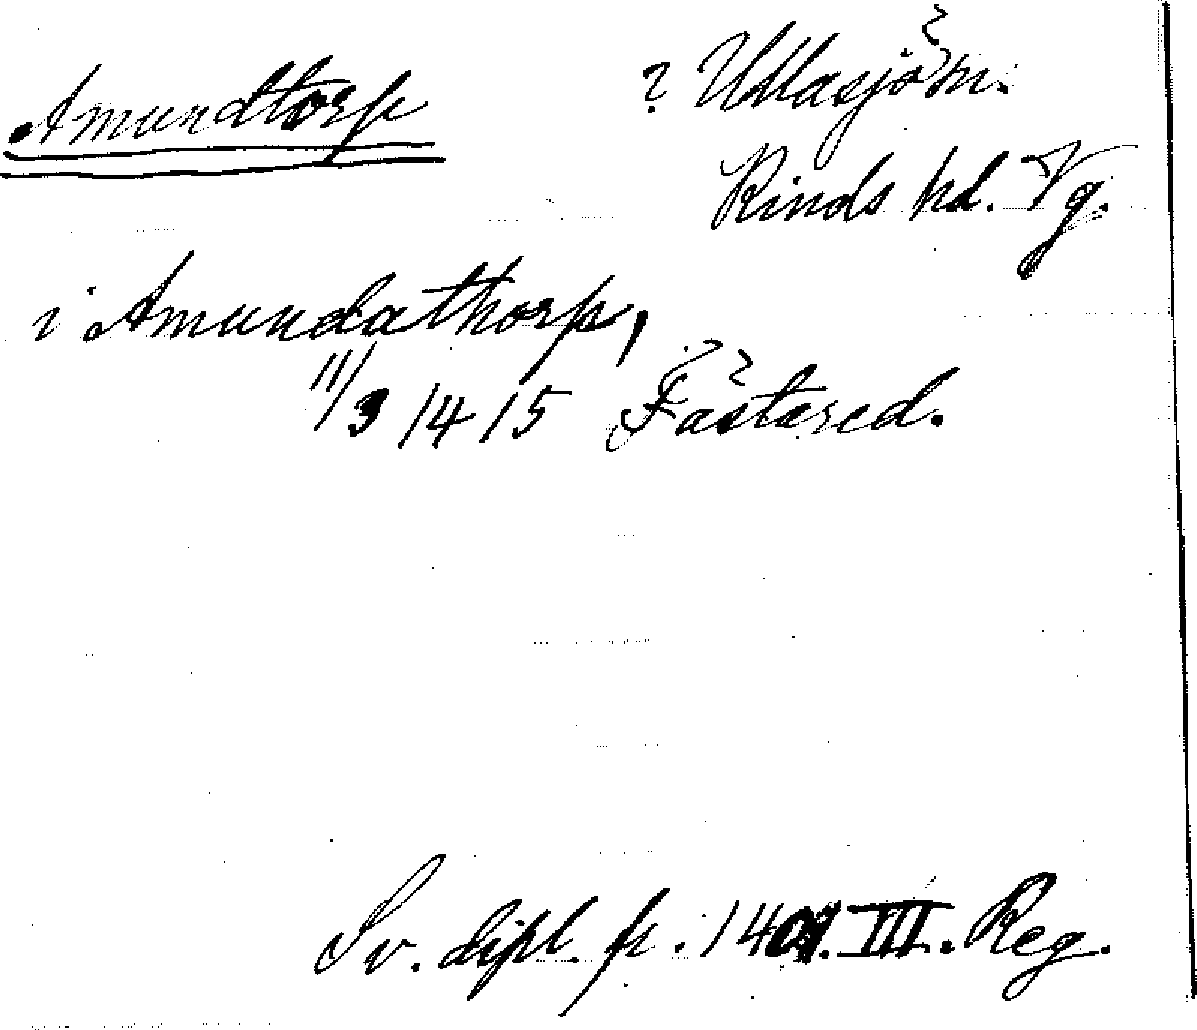 Amundtorp
? Ullasjö sn.
Kinds hd. Vg.
i Amundathorp,
11/3 1415 Fästered.
Sv. dipl. fr. 1401. III. Reg.